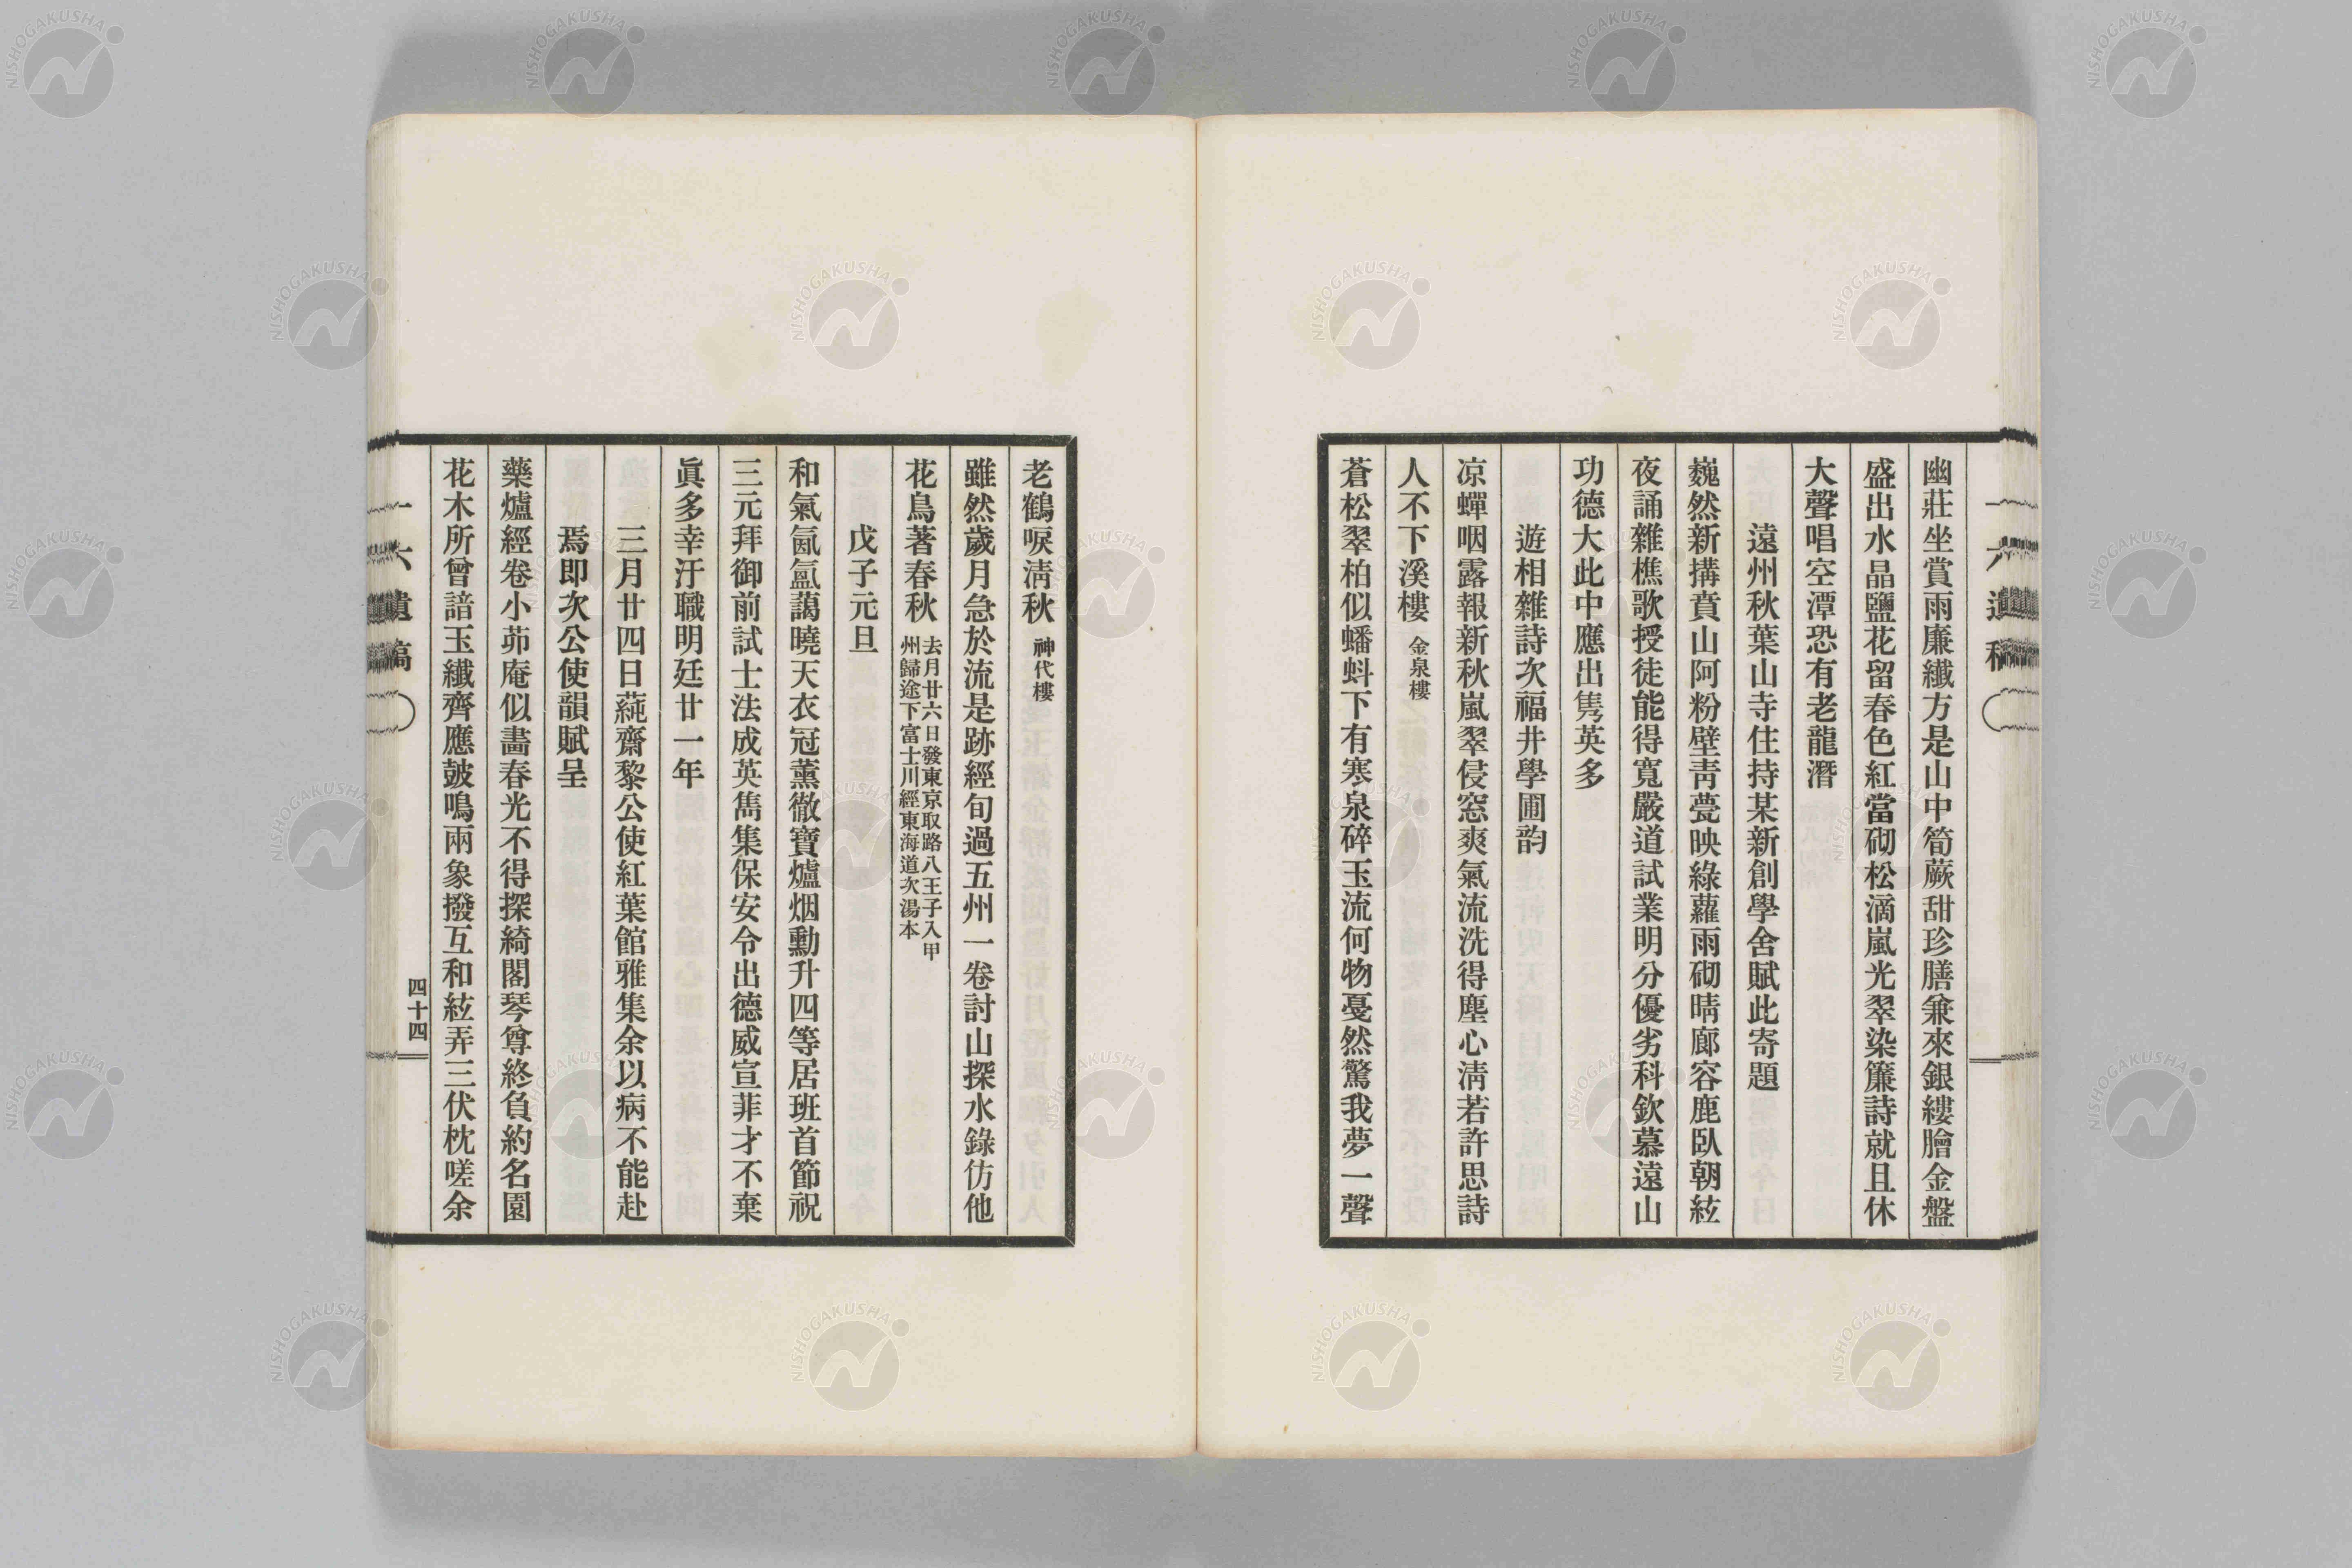 幽莊坐賞雨廉纖方是山中筍蕨甜珍膳兼來銀縷膾金盤
盛出水晶鹽花留春色紅當砌松滴嵐光翠染簾詩就且休
大聲唱空潭恐有老龍潛
遠州秋葉山寺住持某新創學舍賦此寄題
巍然新搆賁山阿粉壁靑甍映綠蘿雨砌晴廊容鹿臥朝絃
夜誦雜樵歌授徒能得寬嚴道試業明分優劣科欽慕遠山
功德大此中應出雋英多
遊相雜詩次福井學圃韵
凉蟬咽露報新秋嵐翠侵窓爽氣流洗得塵心淸若許思詩
人不下溪樓 金泉樓
蒼松翠柏似蟠蚪下有寒泉碎玉流何物戞然驚我夢一聲
老鶴唳淸秋 神代樓
雖然歲月急於流是跡經旬過五州一卷討山探水錄仿他
花鳥著春秋 去月廿六日發東京取路八王子入甲
州歸途下富士川經東海道次湯本
戊子元旦
和氣氤氳藹曉天衣冠薰徹寶爐烟勳升四等居班首節祝
三元拜御前試士法成英雋集保安令出德威宣菲才不棄
眞多幸汙職明廷廿一年
三月廿四日蒓齋黎公使紅葉館雅集余以病不能赴
焉即次公使韻賦呈
藥爐經卷小茆庵似畵春光不得探綺閣琴尊終負約名園
花木所曾諳玉纖齊應皷鳴兩象撥互和絃弄三伏枕嗟余
一六遺稿
四十四